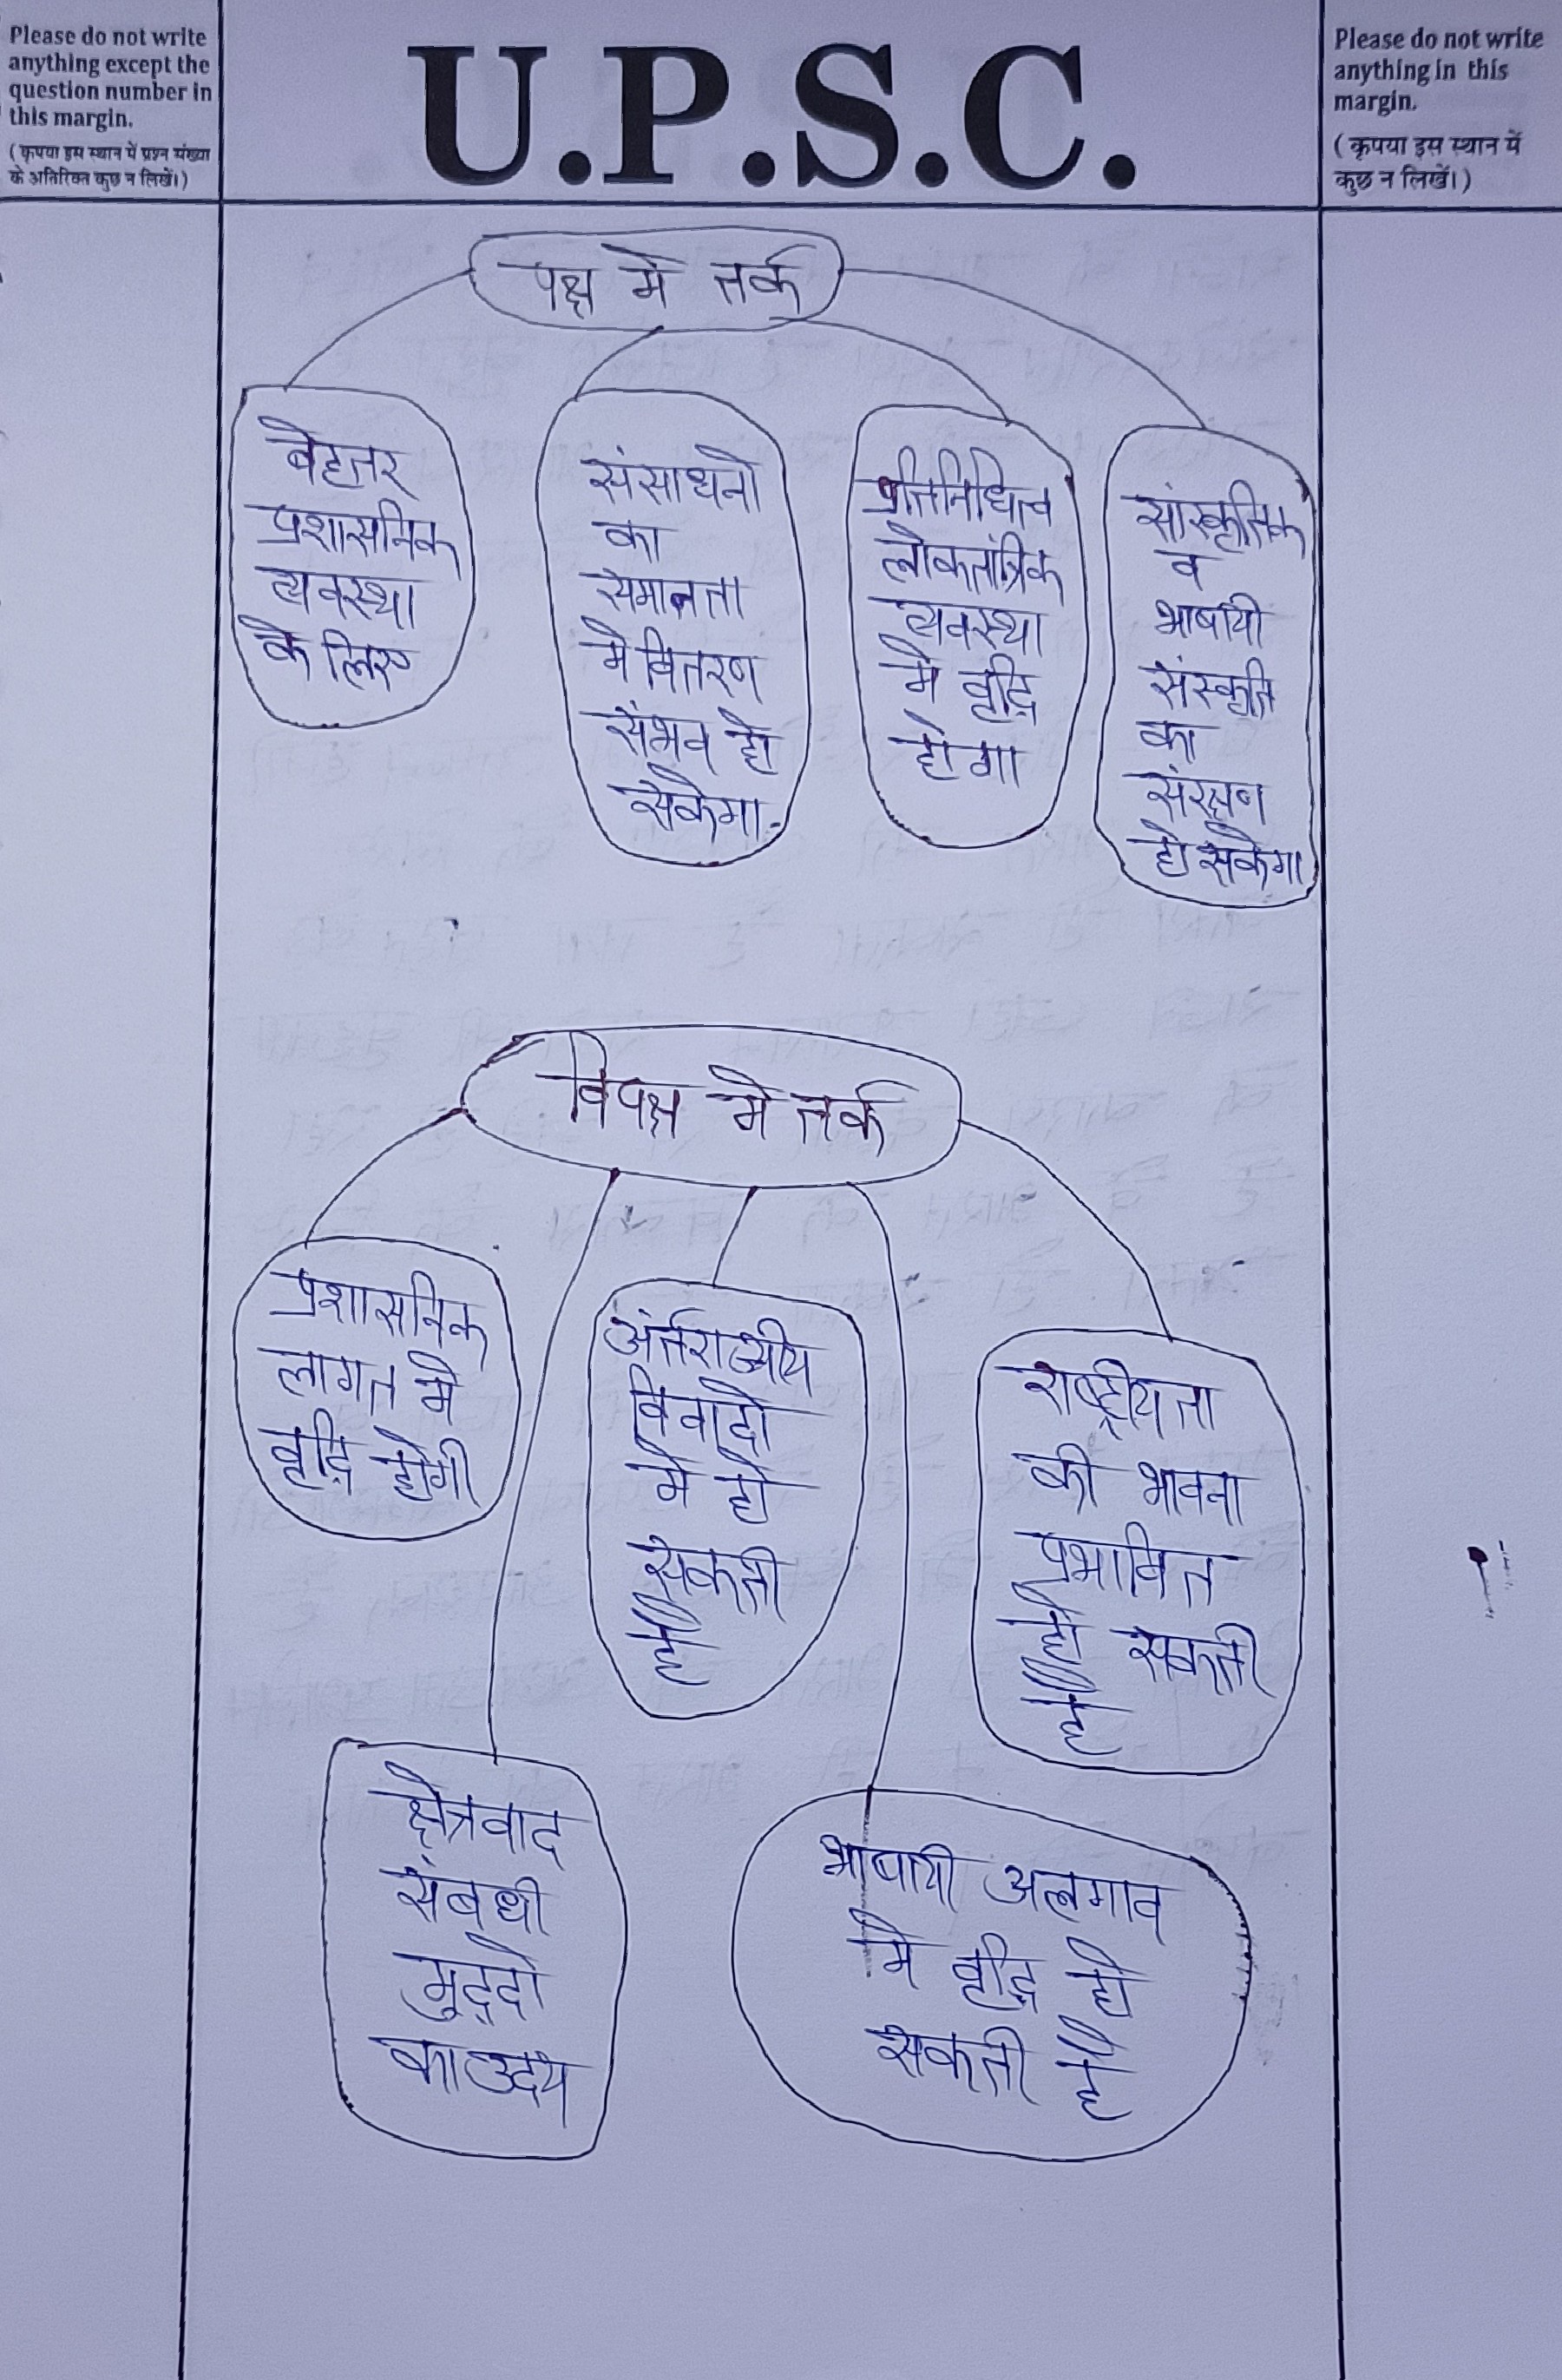 Please do not write
anything except the
question number in
this margin.
(कृपया इस स्थान में प्रश्न संख्या
के अतिरिक्त कुछ न लिखें।)
U.P.S.C.
Please do not write
anything in this
margin.
(कृपया इस स्थान में
कुछ न लिखें।)
पक्ष मे तर्क
बेहतर
प्रशासनिक
व्यवस्था
के लिए
संसाधनो
का
समानता
मे वितरण
संभव हो
सकेगा
प्रतिनिधित्व
लोकतांत्रिक
व्यवस्था
मे वृद्धि
होगा
सांस्कृतिक
व
भाषायी
संस्कृति
का
संरक्षण
हो सकेगा
विपक्ष मे तर्क
प्रशासनिक
लागत मे
वृद्धि होगी
अंर्तराज्यीय
विवादो
मे हो
सकती
है
राष्ट्रीयता
की भावना
प्रभावित
हो सकती
है
क्षेत्रवाद
संबधी
मुद्दो
का उदय
भाषायी अलगाव
मे वृद्धि हो
सकती है